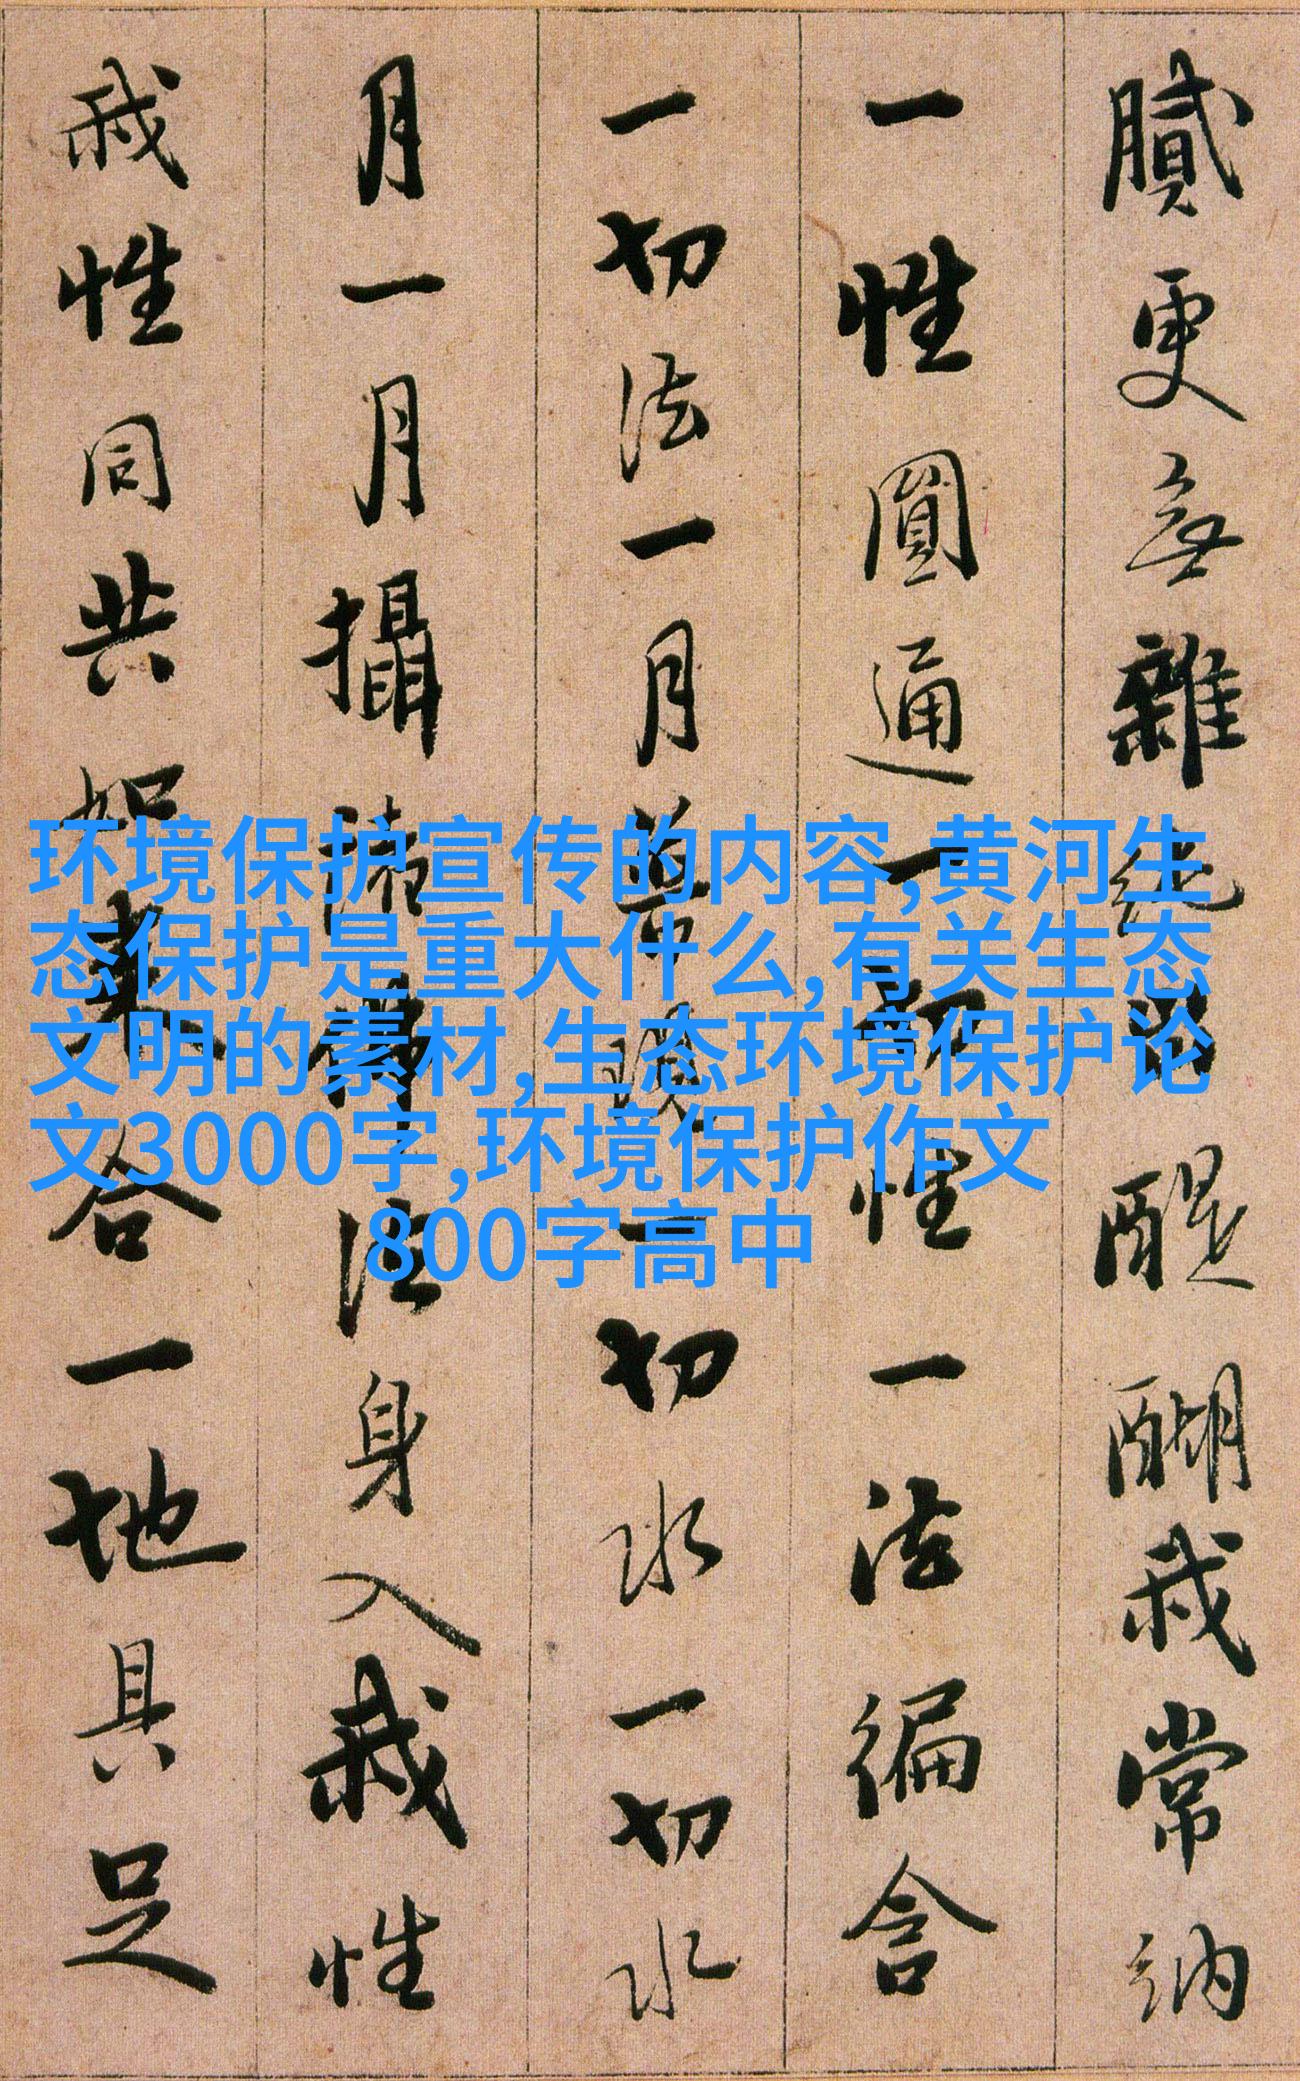 膩更無雜純出醍醐我常納
一性圓通一切性一法徧含
一切法一月普現一切水一切水
月一月攝諸佛法身入我性
我性同共如来合一地具足
环境保护宣传的内容,黄河生
态保护是重大什么,有关生态
文明的素材,生态环境保护论
文3000字,环境保护作文
800字高中